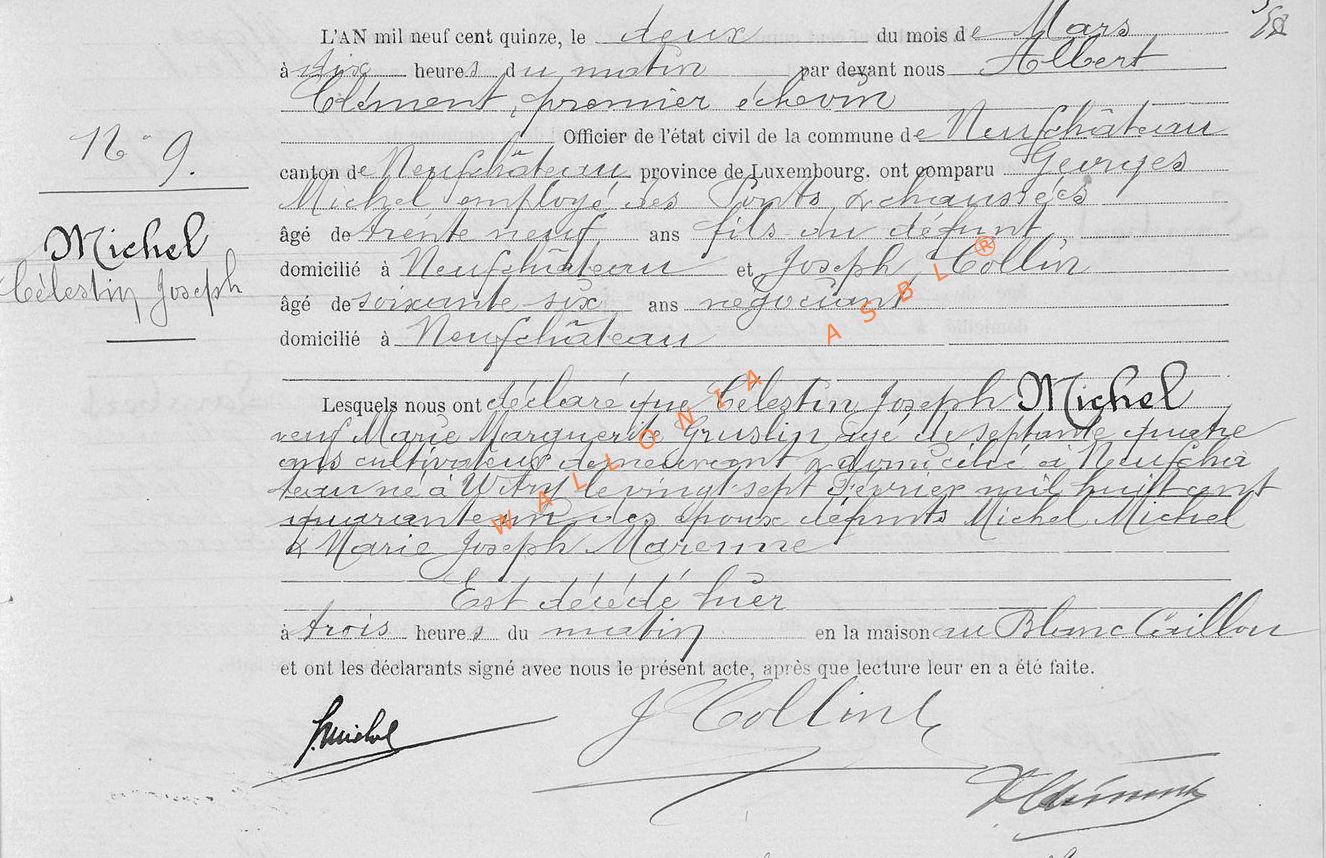 L'AN mil neuf cent quinze, le deux du mois de Mars
à dix heures du matin par devant nous Albert
Clément, premier échevin
Officier de l'état civil de la commune de Neufchâteau
N° 9.
canton de Neufchâteau province de Luxembourg. ont comparu Georges
Michel employé des Ponts & chaussées
Michel
Célestin Joseph
âgé de trente neuf ans fils du défunt,
domicilié à Neufchâteau et Joseph Collin
âgé de soixante six ans négociant
domicilié à Neufchâteau
Lesquels nous ont déclaré que Célestin Joseph Michel
veuf Marie Marguerite Gruslin, agé de septante quatre
ans cultivateur demeurant & domicilié à Neufchâ
teau né à Witry le vingt sept Février mil huit cent
quarante un des époux défunts Michel Michel
& Marie Joseph Marenne
Est décédé hier
à trois heures du matin en la maison au Blanc Caillou
et ont les déclarants signé avec nous le présent acte, après que lecture leur en a été faite.
G. Michel
J Collin
A Clément
WALLONIA ASBL®